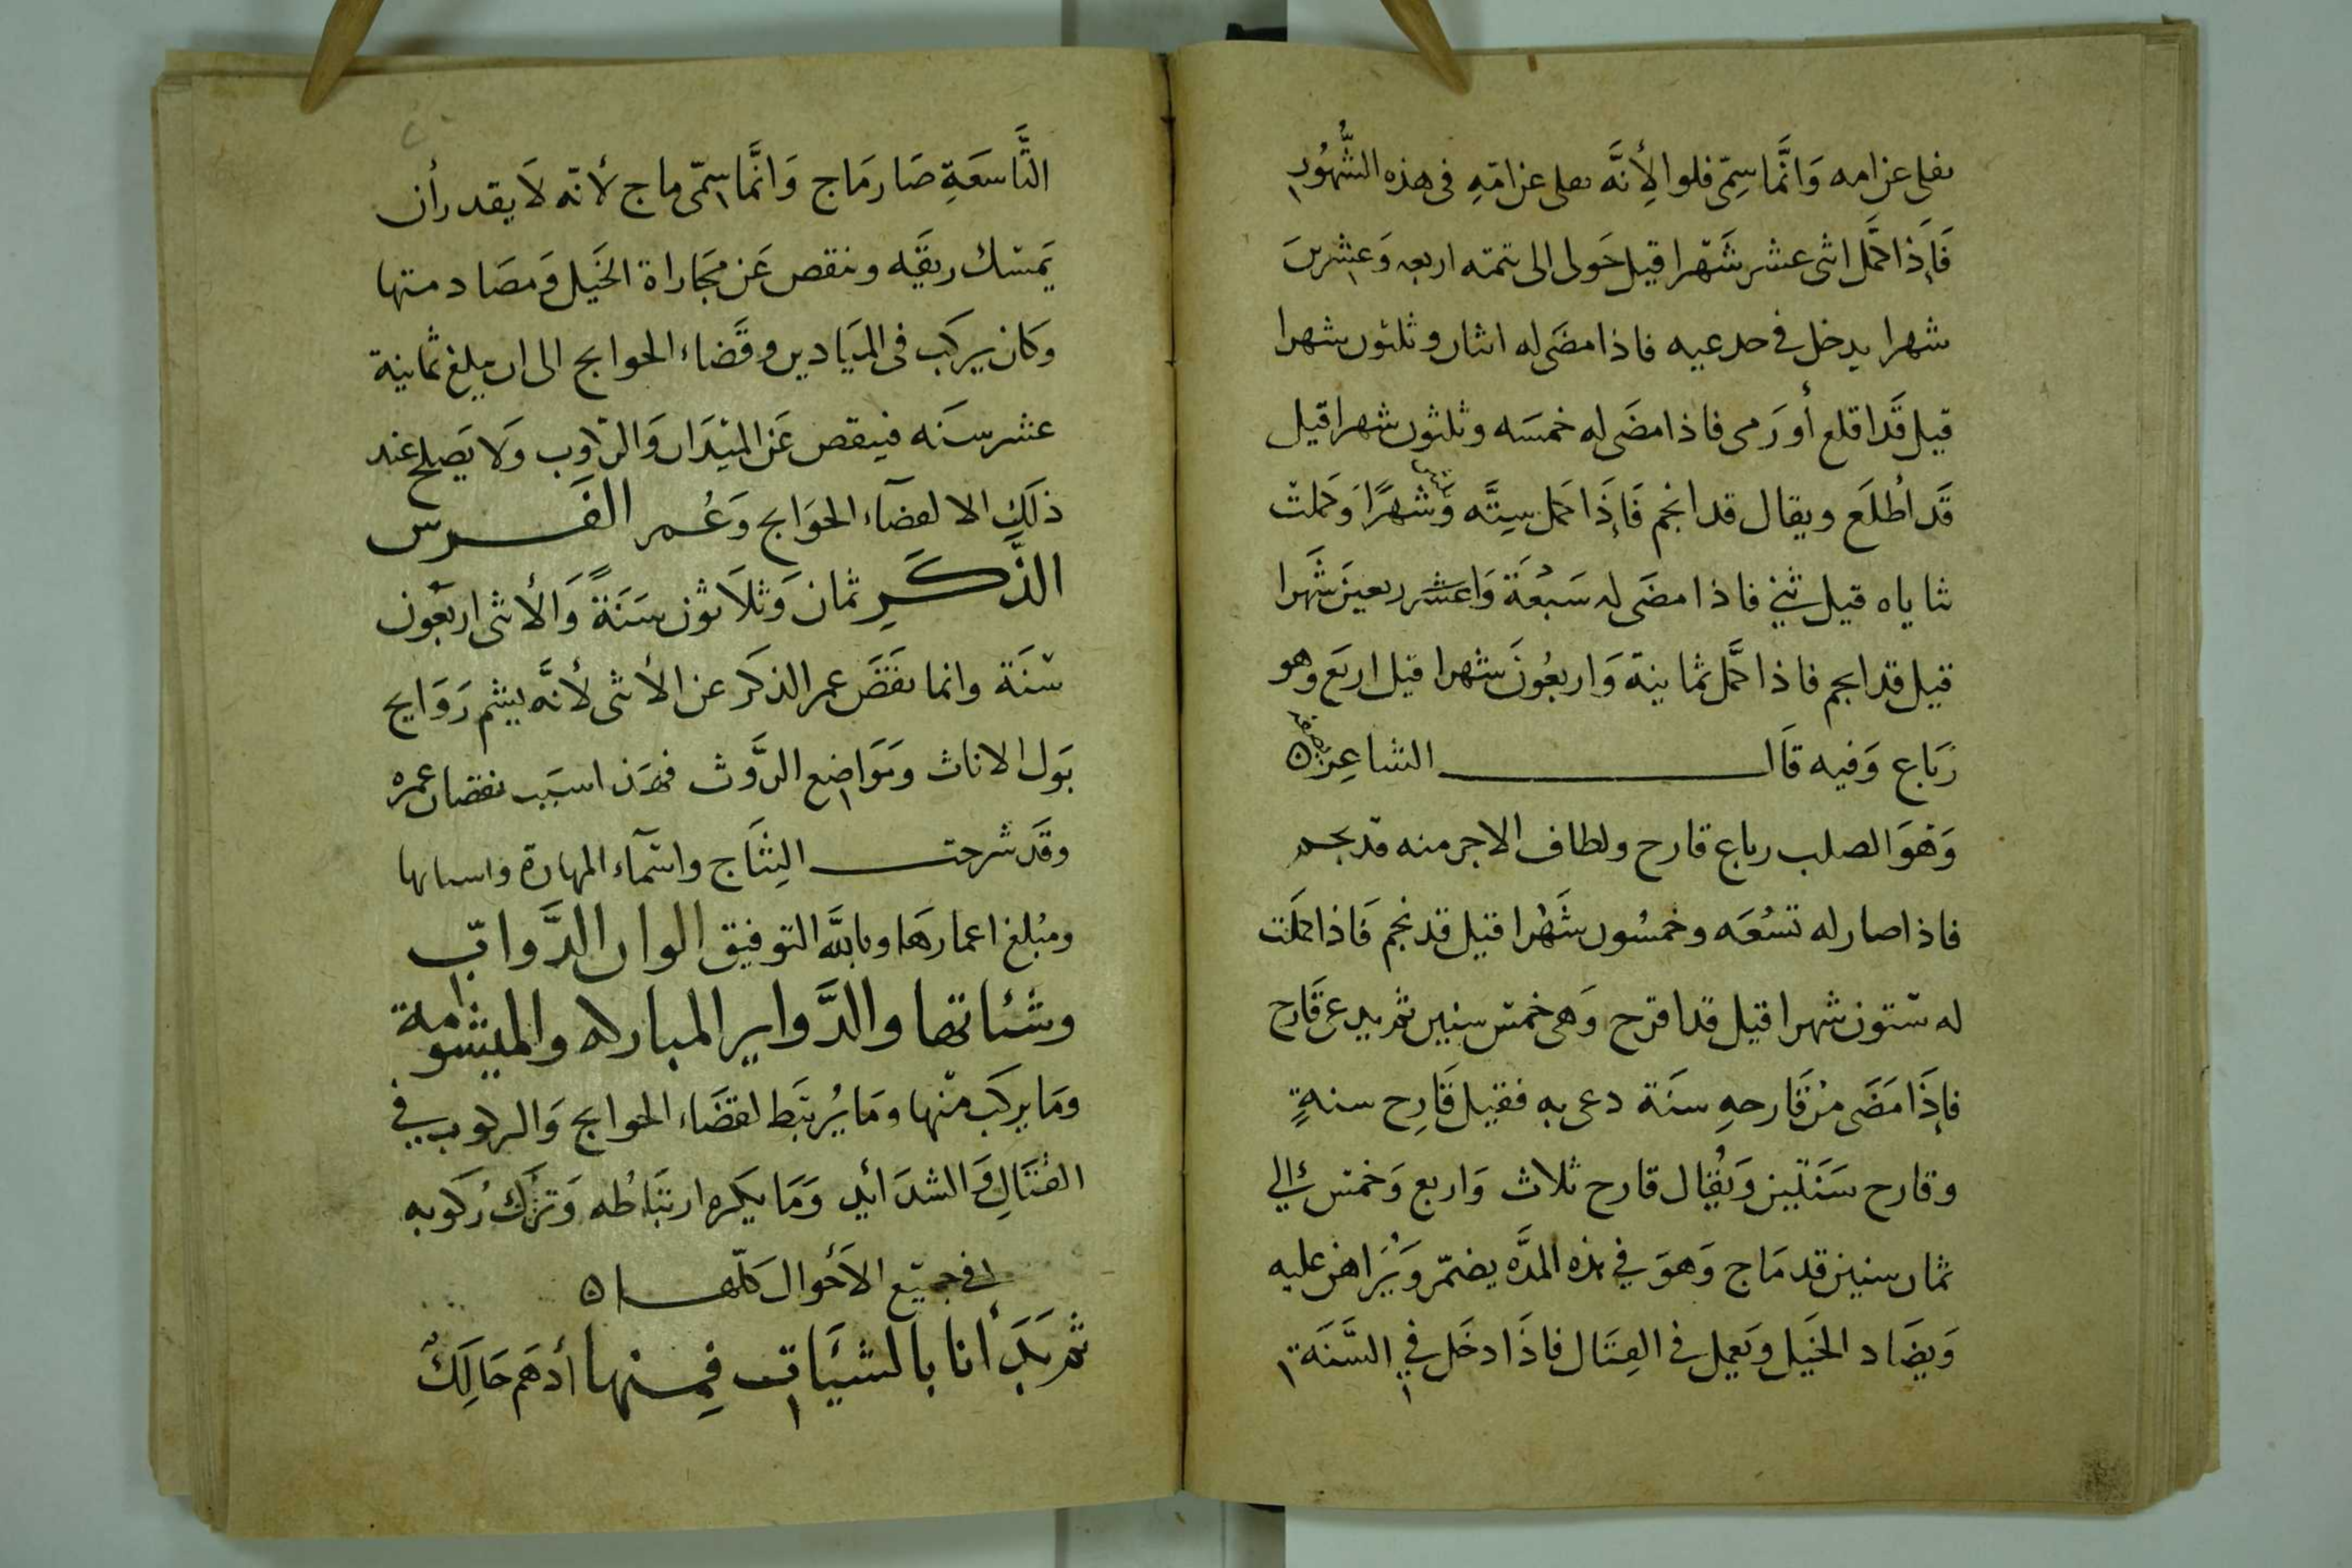 يفلى عن امه وَانَّما سِمّى فلوا لِأنَّه يفلى عن امّهِ فى هذه الشُّهُور
فَإذا كمَّل اثنى عشر شَهْرا قيل حَولى الى تتمته اربعه وَعشرين
شهرا يدخل في حد عيه فاذا مضَى له اثنان وثلثون شهرا
قيل قَد اقلع أو رَمى فاذا مضَى له خمسَه وثلثون شهرا قيل
قَد اطْلَعَ ويقال قد انجم فَإذَا كمل ستَّه وَ شهرًا وَكملت
ثناياه قيل ثني فاذا مضَى له سَبْعَة وَاربعين شَهرا
قيل قد انجم فاذا كمَّل ثمانية وَاربعُونَ شهرا قيل اربَع وهو
رَبَاع وَفيه قاَل الشاعِر
وَهْوَ الصلب رباع قارح ولطاف الاجر منه قد نجم
فاذا صار له تسْعَه وخمسُون شَهْرا قيل قد نجم فَاذا كملت
له سْتون شهرا قيل قد اقرح وَهى خمسْ سنين ثم يدعى قَارح
فإذَا مَضَى مِنْ قَارحهِ سنَة دعى به فقيل قَارِح سنةٍ
وقارح سَنَتَين وَيُقال قارح ثلاث وَاربع وَخمسْ الي
ثمان سنين قد مَاج وَهوَ في هذه المدَّه يضمّر وَيُرَاهن عليه
وَيضَاد الخيَل وَيَعمل فى القِتَال فاذَا دخَل في السَّنَة
التَّاسَعَةِ صَار مَاج وَانَّما سمّى ماج لأنّه لاَ يقدر أن
يَمسْك ريقَه وينقص عَن مجَاراة الخيَل وَمصَادمتها
وَكان يركَب فى الميَادين وقَضاء الحوايج الى ان يبلغ ثمانية
عشر سنَه فينقص عَن الميْدَان وَالركوب وَلا يَصلح عند
ذلَكِ الا لقضآء الحوَايج وَعُمر الفَرس
الذَّكَرِ ثمان وَثلاَثون سَنَةً وَالأنثى اربعُون
سْنَة وانما نقصَ عمر الذكَر عن الأنثى لأنَّه يشم رَوَايح
بَول الاناث ومَوَاضع الرَّوث فهَذا سبَب نقصان عمره
وقَد شرحت النِتَاج واسْمآء المهارة واسنانها
ومبْلغ اعمارهَا وبالله التوفيق الوان الدَّوابّ
وشئاتها والدَّواير المباركه والميشومة
ومَا يركَب منْها ومَا يُربَط لقضَاء الحوايج وَالركوب في
القتَالِ وَالشدَائد وَمَا يكَره ارتبَاطُه وَترْك رُكَوبه
فى جميْع الأَحْوال كلّها
ثم بَدَأنا بالشيَات فمِنها أدهَم حَالِكٌ